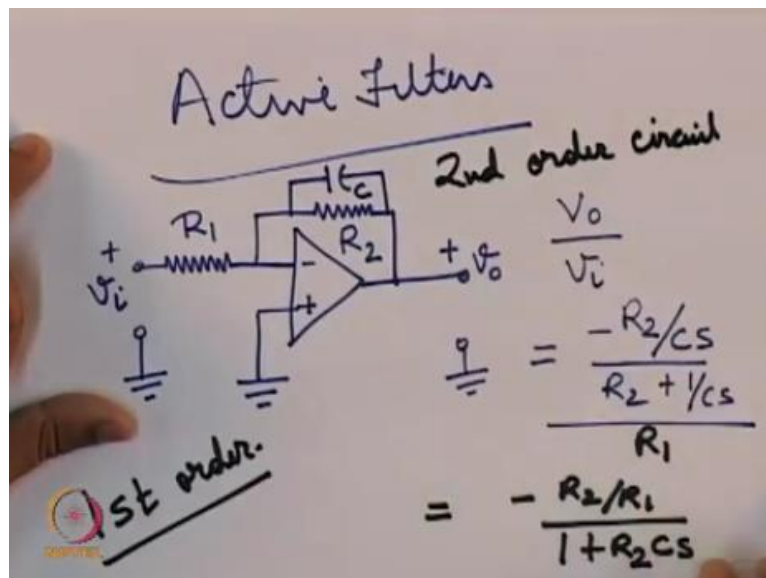 Active Filters
2nd order circuit
C
R1
R2
+
vi
-
+
+
vo
Vo
Vi
= -R2/CS
R2 + 1/CS
R1
1st order.
= - R2/R1
1 + R2CS